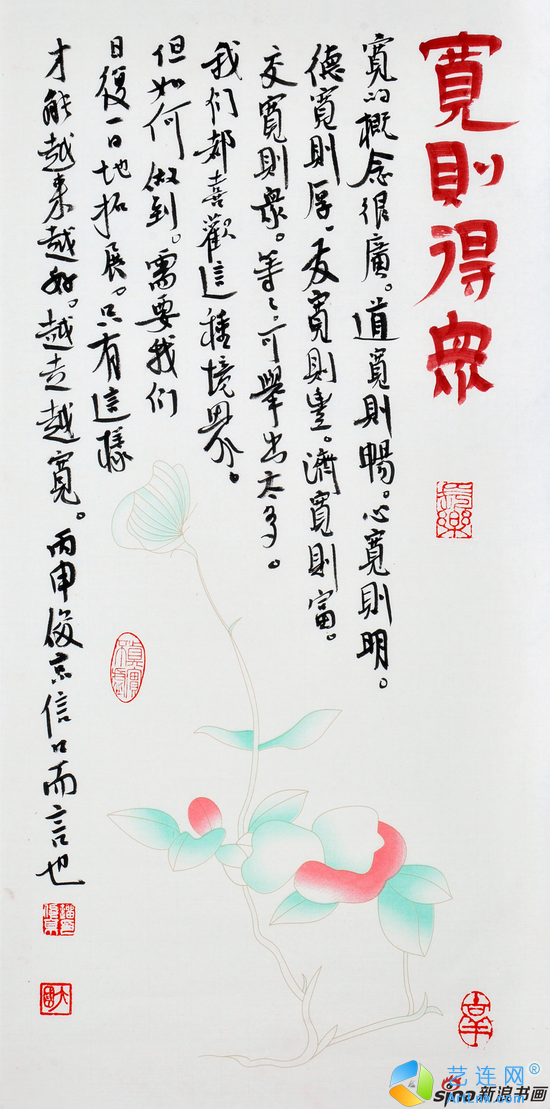 寬則得眾
寬的概念很廣。道寬則暢。心寬則明。
德寬則厚。友寬則豊。濟寬則富。
交寬則衆。等々。可舉出太多。
我们都喜歡這種境界。
但如何做到。需要我们
日復一日地拓展。只有這樣
才能越来越好。越走越寬。丙申俊京信口而言也
長樂
大
艺连网®
Artlnk.com
sina新浪书画